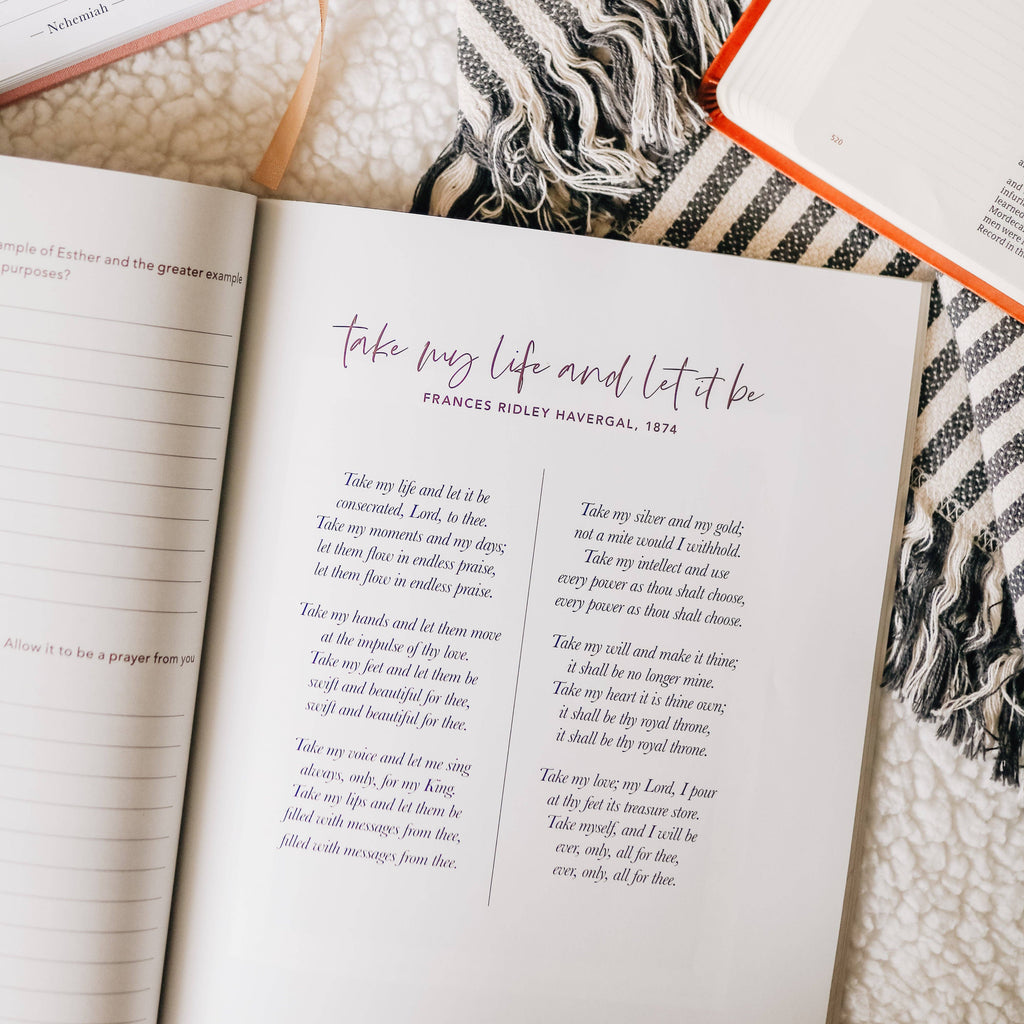 — Nehemiah —
520
and
learned
Mordecai
men were
Record in the
example of Esther and the greater example
purposes?
Allow it to be a prayer from you
take my life and let it be
FRANCES RIDLEY HAVERGAL, 1874
Take my life and let it be
consecrated, Lord, to thee.
Take my moments and my days;
let them flow in endless praise,
let them flow in endless praise.
Take my hands and let them move
at the impulse of thy love.
Take my feet and let them be
swift and beautiful for thee,
swift and beautiful for thee.
Take my voice and let me sing
always, only, for my King.
Take my lips and let them be
filled with messages from thee,
filled with messages from thee.
Take my silver and my gold;
not a mite would I withhold.
Take my intellect and use
every power as thou shalt choose,
every power as thou shalt choose.
Take my will and make it thine;
it shall be no longer mine.
Take my heart it is thine own;
it shall be thy royal throne,
it shall be thy royal throne.
Take my love; my Lord, I pour
at thy feet its treasure store.
Take myself, and I will be
ever, only, all for thee,
ever, only, all for thee.